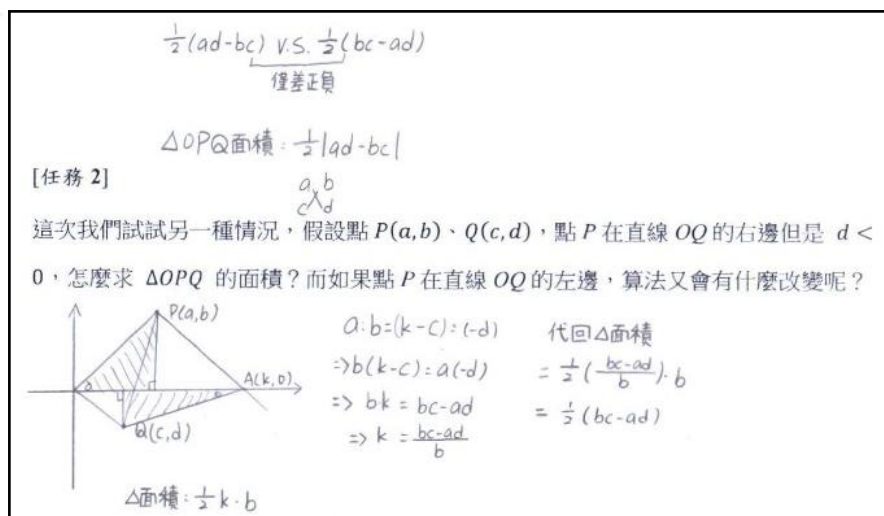 ½(ad-bc) V.S. ½(bc-ad)
僅差正負
△OPQ面積：½|ad-bc|
[任務 2]
a b
c d
這次我們試試另一種情況，假設點 P(a,b)、Q(c,d)，點 P 在直線 OQ 的右邊但是 d <
0，怎麼求 ΔOPQ 的面積？而如果點 P 在直線 OQ 的左邊，算法又會有什麼改變呢？
P(a,b)
A(k,0)
Q(c,d)
△面積：½k·b
a:b=(k-c):(-d)
=>b(k-c)=a(-d)
=> bk = bc-ad
=> k = (bc-ad)/b
代回△面積
= ½((bc-ad)/b)·b
= ½(bc-ad)